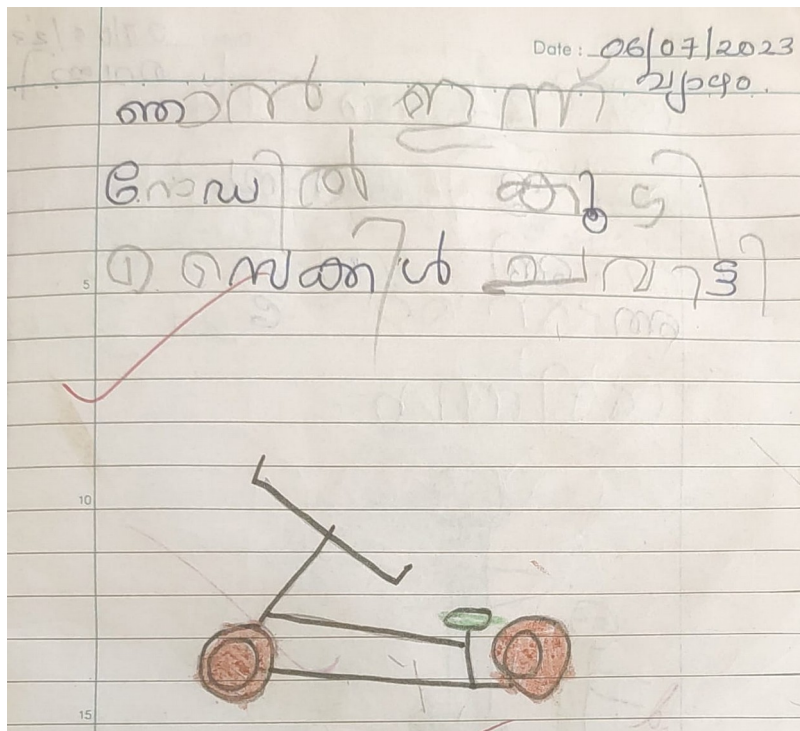 Date: 06/07/2023
വ്യാഴം.
ഞാൻ ഇന്ന്
റോഡിൽ കൂടി
സൈക്കിൾ ചവാട്ടി
5
10
15